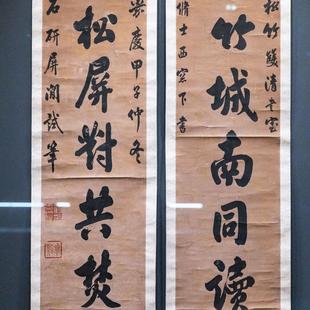 松竹雙清書室
竹城南同讀
脩士西窓下書
嘉慶甲子仲冬
松屏對共焚
石研屏閒試筆